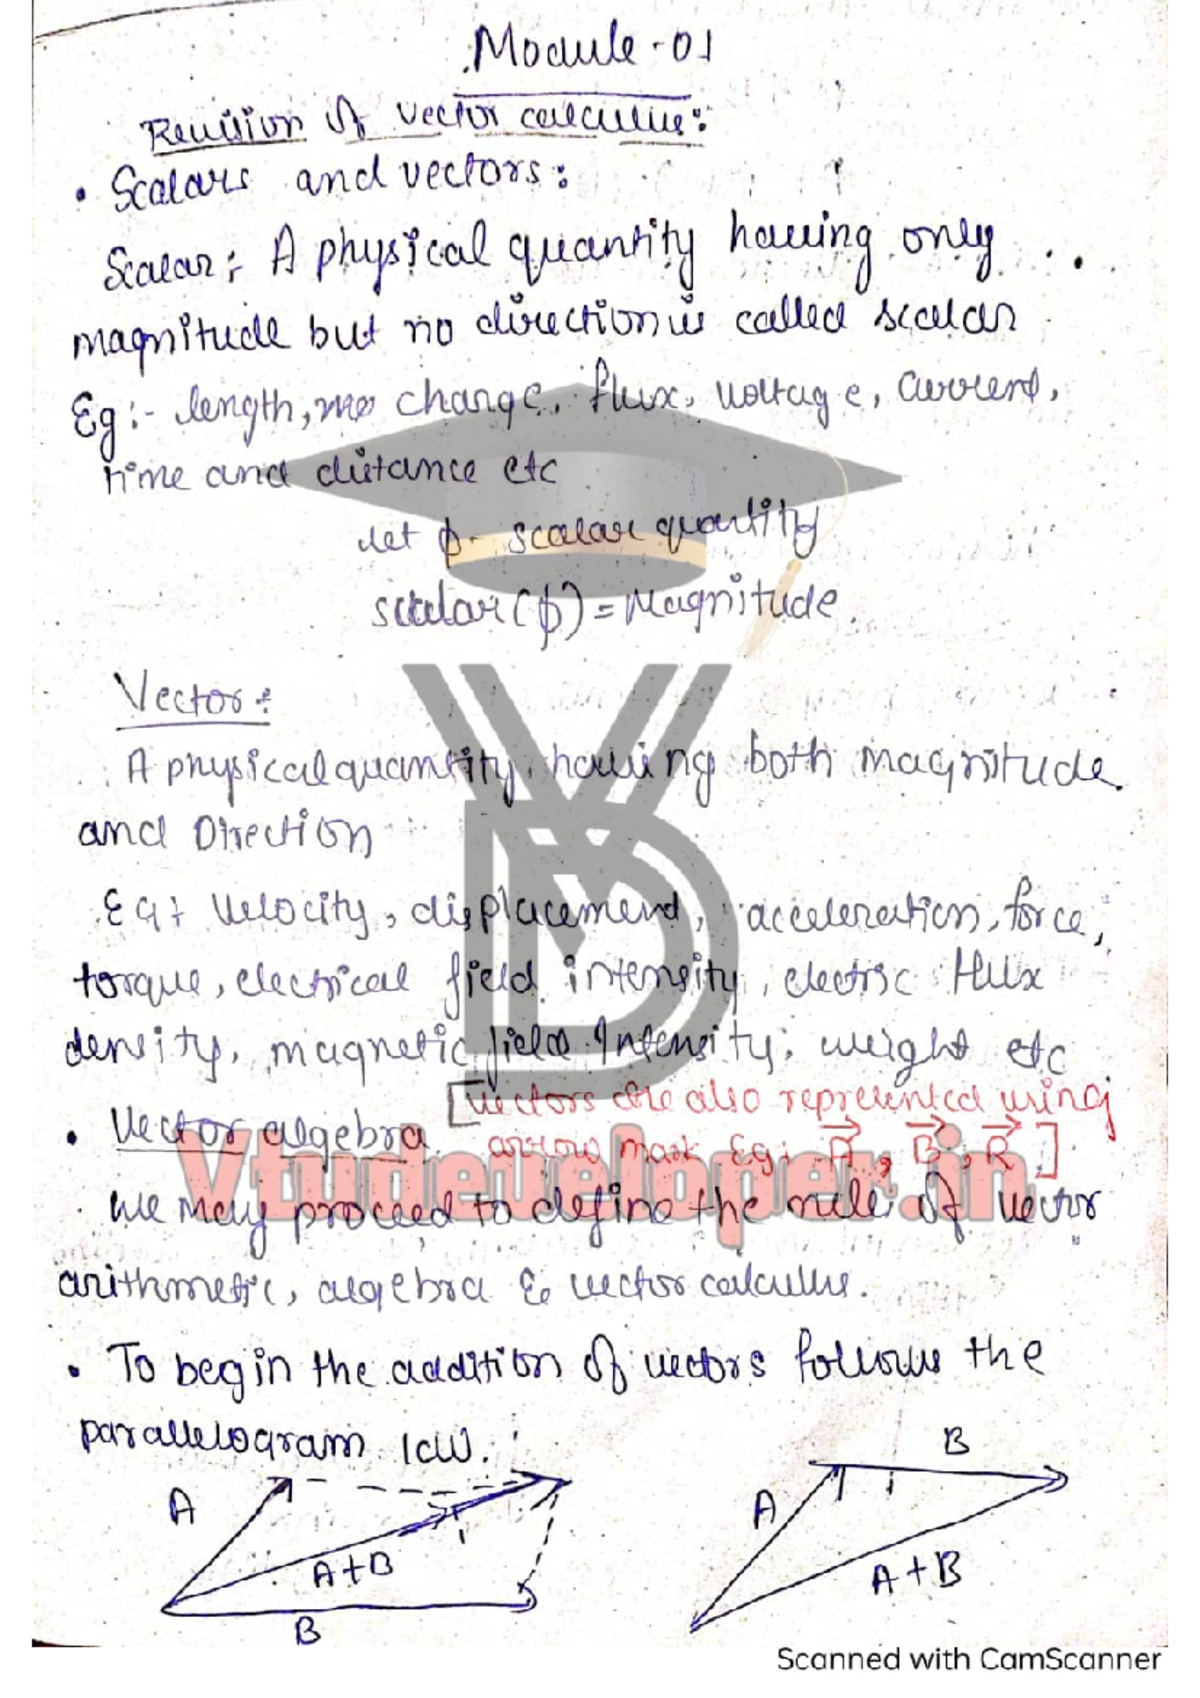 Module-01
Revision of vector calculus:
• Scalars and vectors:
Scalar: A physical quantity having only
magnitude but no direction is called scalar
Eg:- length, charge, flux, voltage, current,
time and distance etc
let ϕ - scalar quantity
scalar(ϕ) = Magnitude
Vector:
A physical quantity having both magnitude
and Direction
Eg: Velocity, displacement, acceleration, force,
torque, electrical field intensity, electric flux
density, magnetic field Intensity, weight etc
[Vectors are also represented using
• Vector algebra
arrow mark Eg:- A⃗, B⃗, R⃗]
Vtudeveloper.in
We may proceed to define the rules of vector
arithmetic, algebra & vector calculus.
• To begin the addition of vectors follows the
parallelogram law.
A
A+B
B
B
A
A+B
Scanned with CamScanner